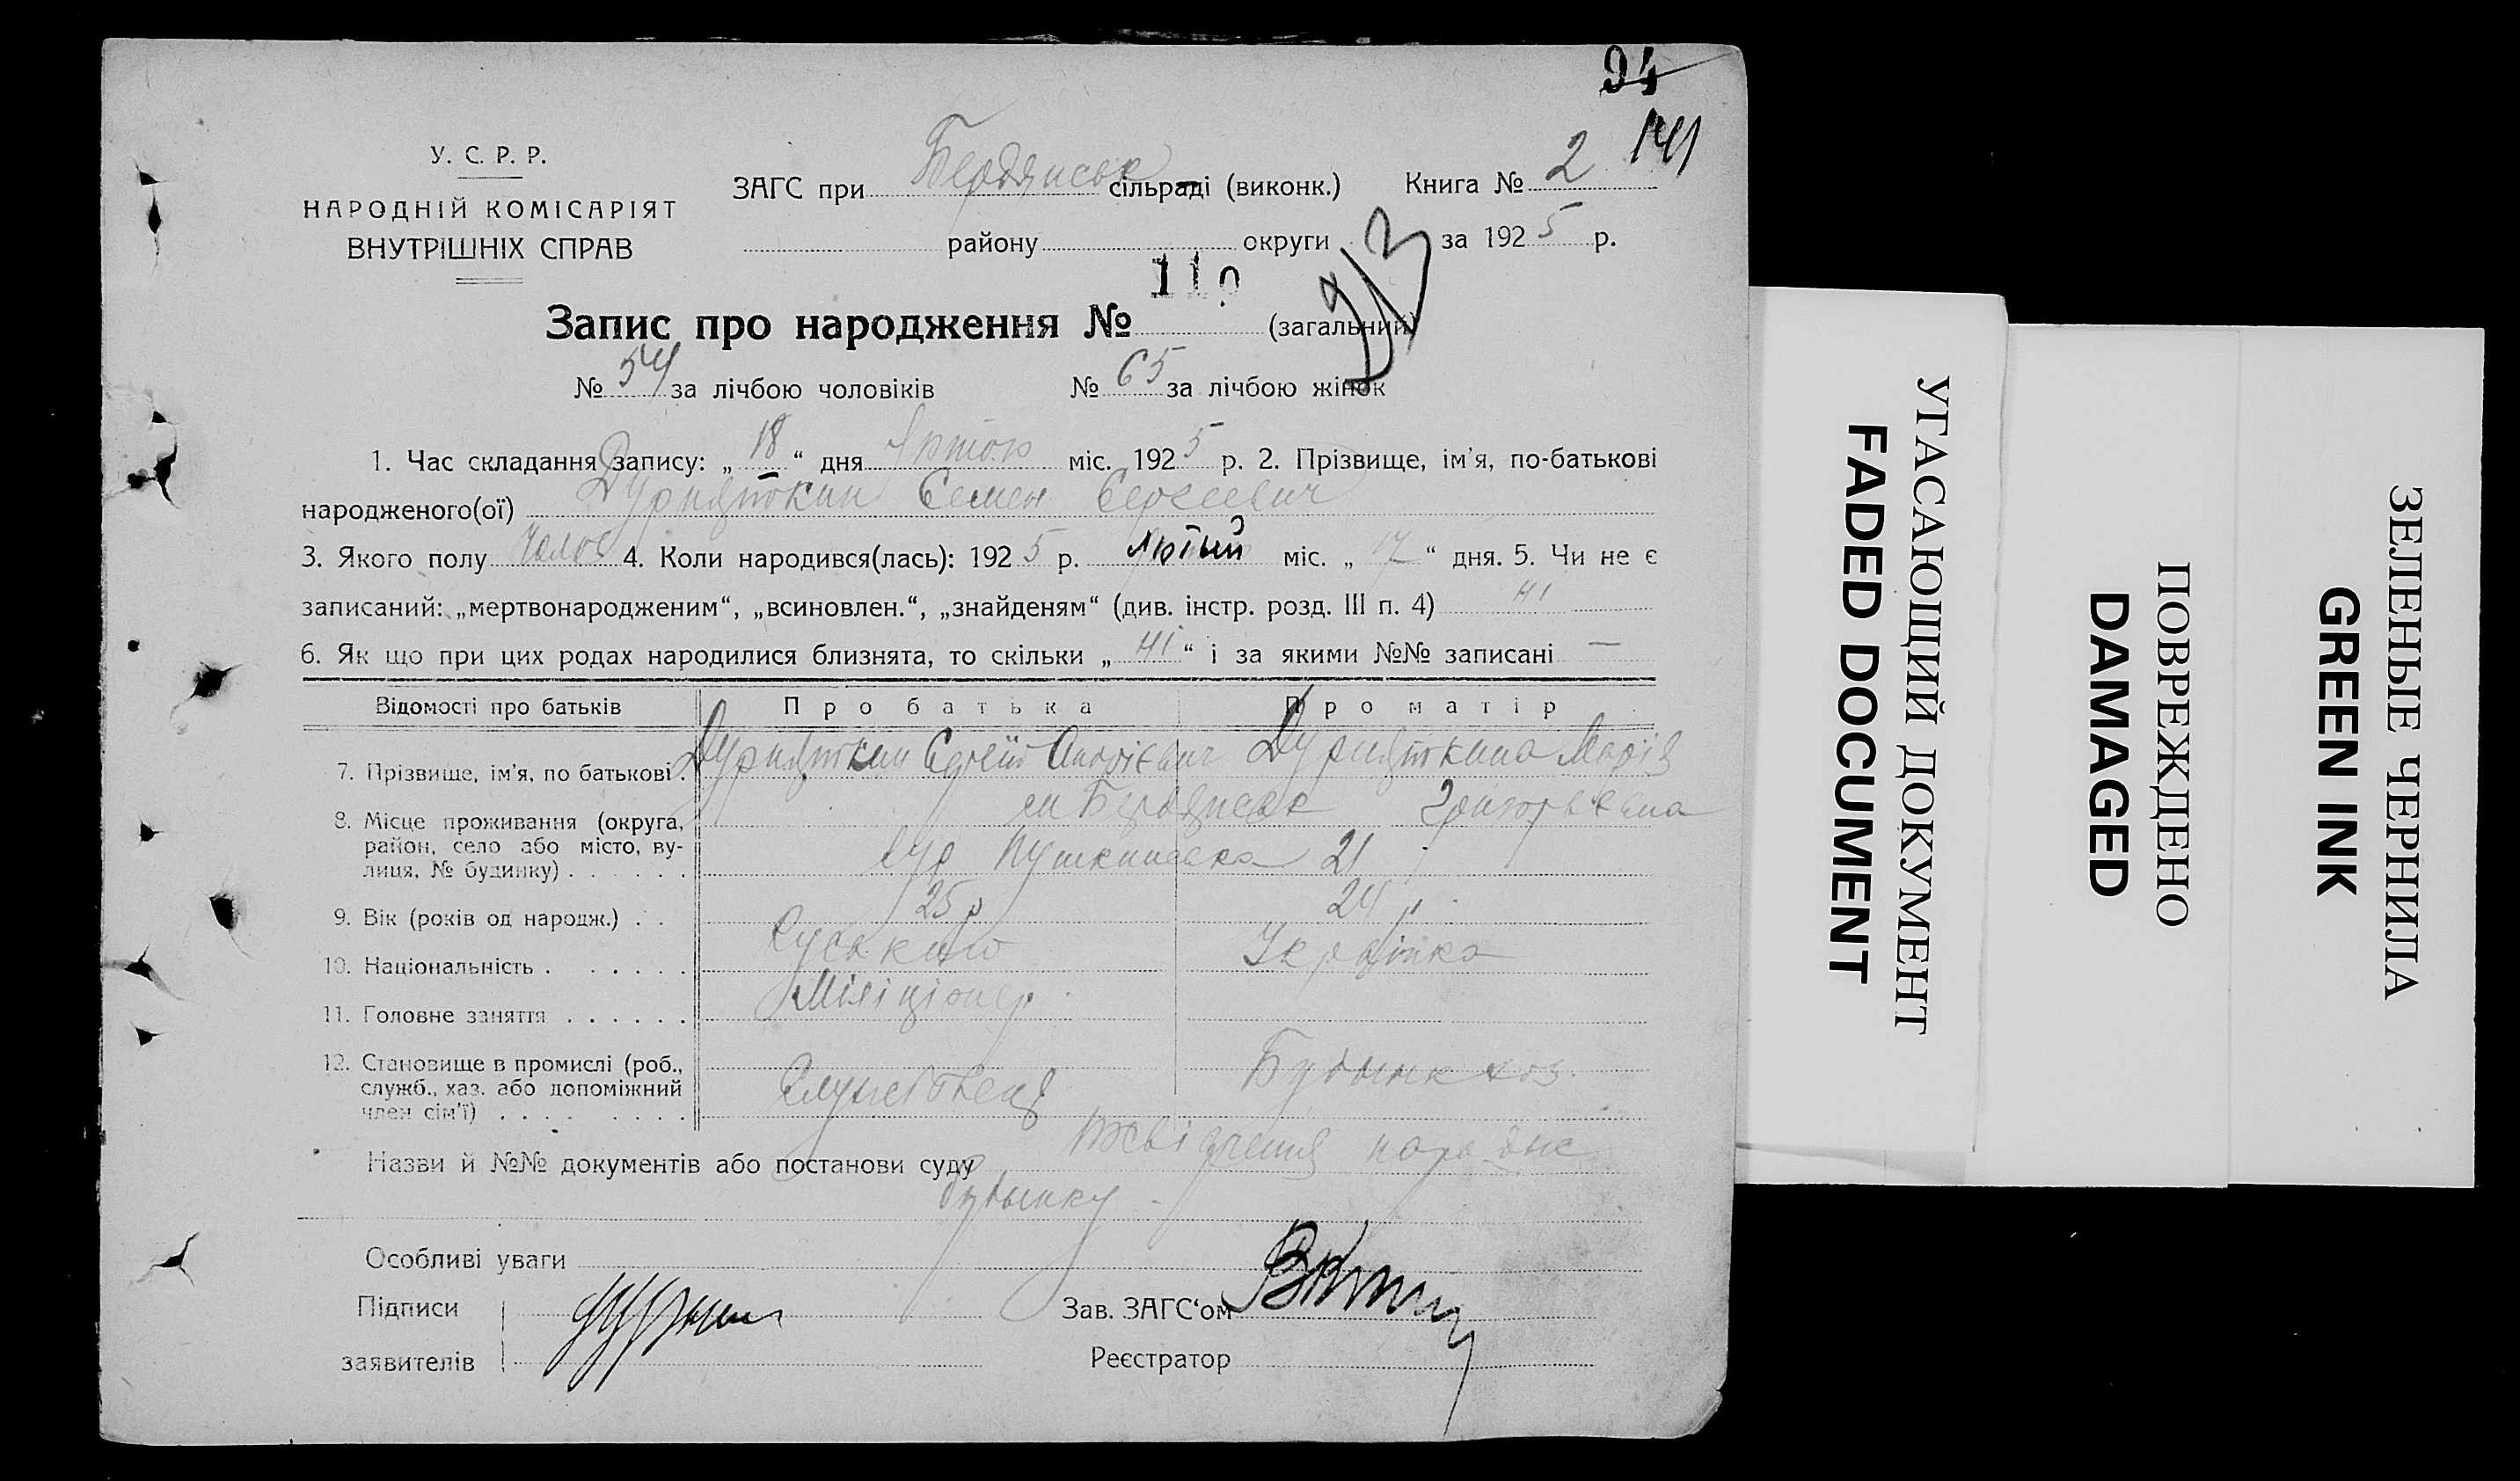 94
141
У. С. Р. Р.
НАРОДНІЙ КОМІСАРІЯТ
ВНУТРІШНІХ СПРАВ
ЗАГС при Бердянськ сільраді (виконк.) Книга № 2
району округи за 1925 р.
Запис про народження № (загальний)
№ 54 за лічбою чоловіків № 65 за лічбою жінок
1. Час складання запису: „18“ дня Лютого міс. 1925 р. 2. Прізвище, ім'я, по-батькові
народженого(ої) Семен Сергеевич
3. Якого полу Чолов 4. Коли народився(лась): 1925 р. Лютый міс. „17“ дня. 5. Чи не є
записаний: „мертвонародженим“, „всиновлен.“, „знайденям“ (див. інстр. розд. III п. 4) Ні
6. Як що при цих родах народилися близнята, то скільки „Ні“ і за якими №№ записані —
Відомості про батьків Про батька Про матір
7. Прізвище, ім'я, по батькові Марія
м Бердянськ Григорьевна
8. Місце проживання (округа, район, село або місто, вулиця, № будинку) вул Пушкинська 21
9. Вік (років од народж.) 25 р 24 р
10. Національність Українка
11. Головне заняття Міліціонер
12. Становище в промислі (роб., служб., хаз. або допоміжний член сім'ї) Службовец Будынк хоз.
Назви й №№ документів або постанови суду
будынку
Особливі уваги
Підписи
заявителів
Зав. ЗАГС'ом
Реєстратор
УГАСАЮЩИЙ ДОКУМЕНТ
FADED DOCUMENT
ПОВРЕЖДЕНО
DAMAGED
ЗЕЛЕНЫЕ ЧЕРНИЛА
GREEN INK